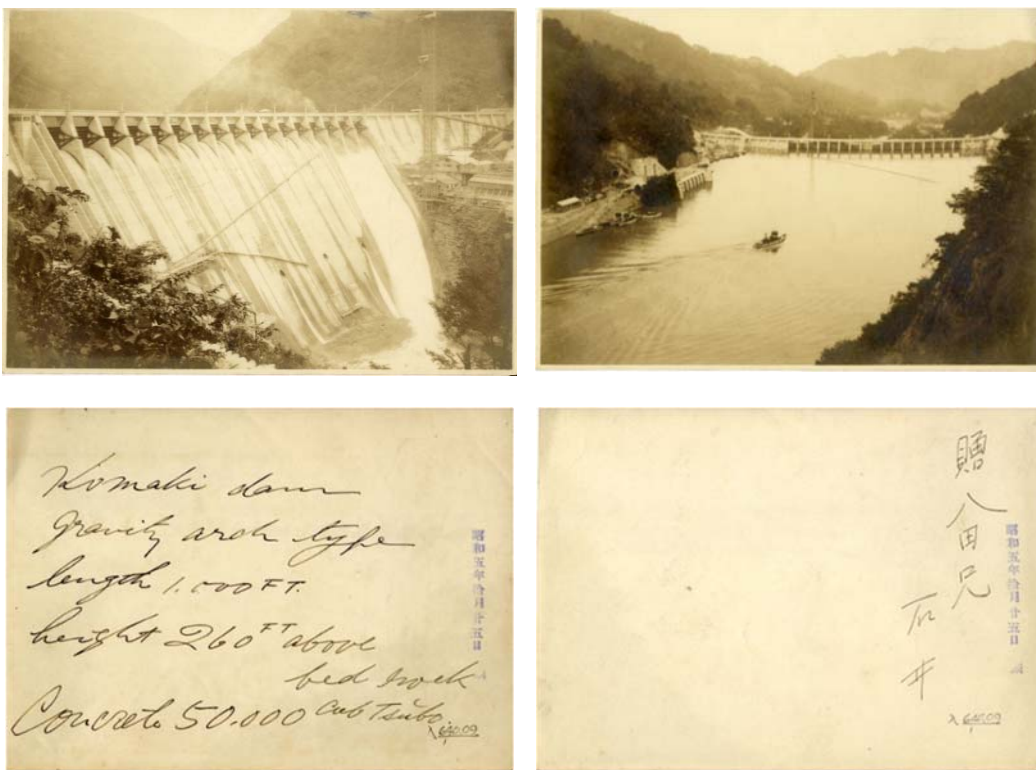 Komaki dam
gravity arch type
length 1.000 FT.
height 260 FT above
bed rock
Concrete 50.000 Cub Tsubo.
昭和五年拾月廿五日
贈
八田兄
石井
昭和五年拾月廿五日